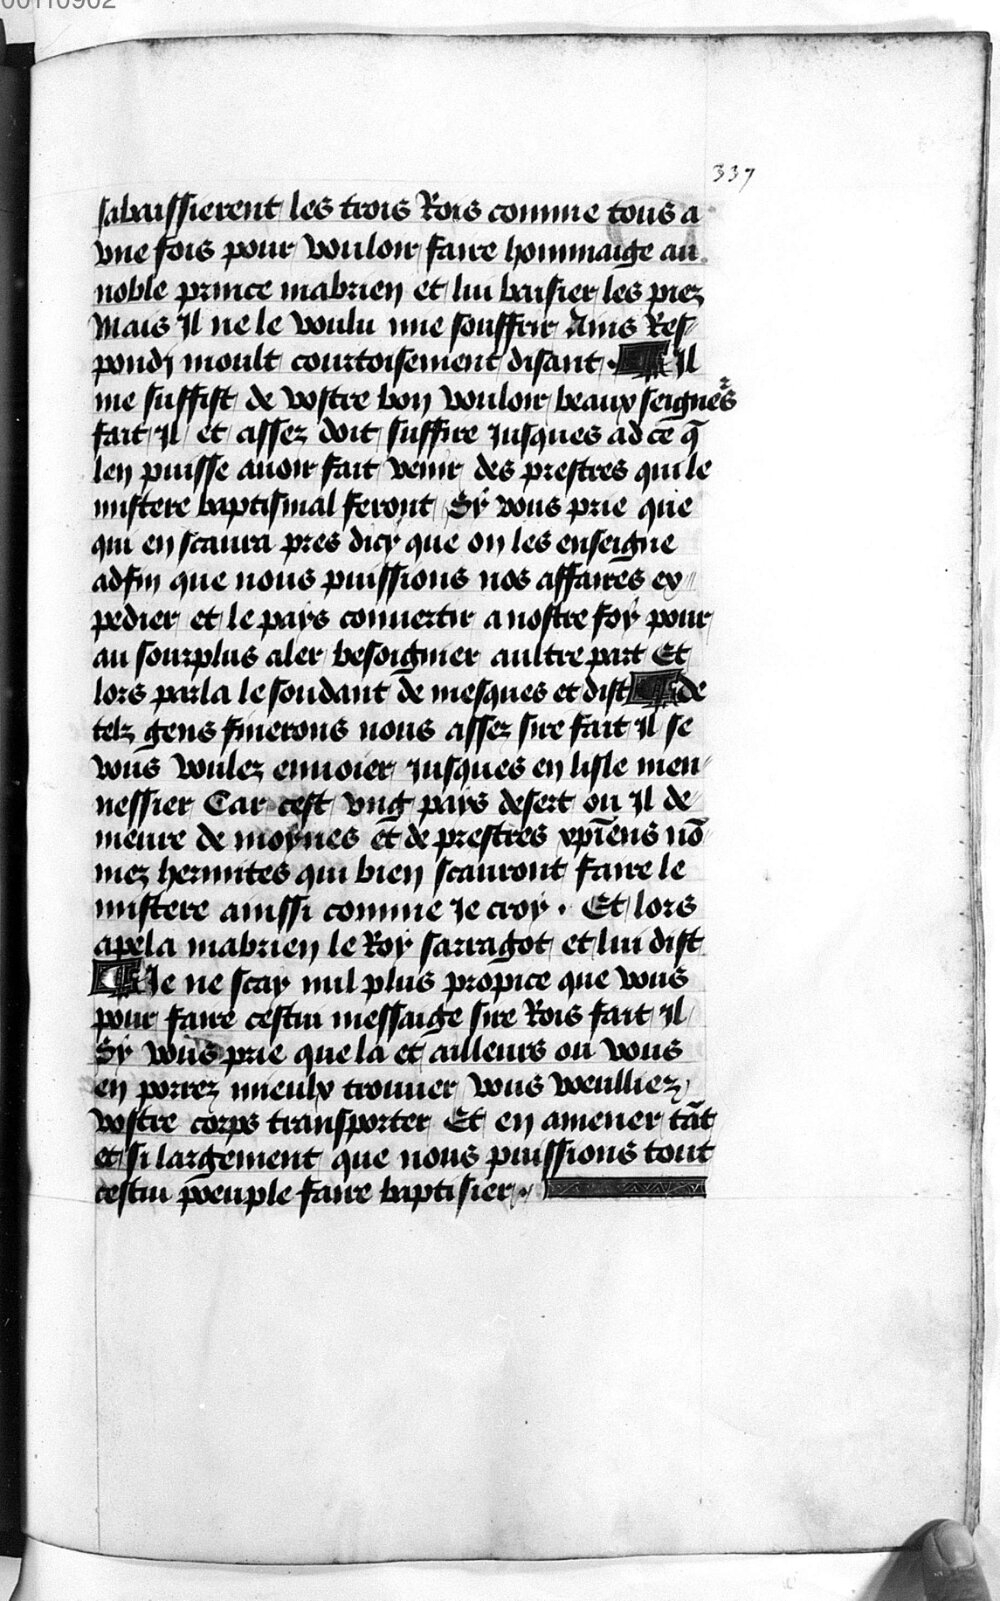 00110902
337
sabaissierent les trois Rois comme tous a
vne fois pour vouloir faire hommaige au
noble prince mabrien et lui baisier les piez
Mais Il ne le voulu mie souffrir Ains Res-
pondj moult courtoisement disant . ¶ Il
me suffist de vostre bon vouloir beaux seigneˢ
fait Il et assez doit suffire Jusques ad ce q̄
len puisse auoir fait venir des prestres qui le
mistere baptismal feront Sy vous prie que
qui en scaura pres dicy que on les enseigne
adfin que nous puissions nos affaires ex-
pedier et le pays conuertir a nostre foy pour
au sourplus aler besoignier aultre part Et
lors parla le soudant de mesques et dist ¶ de
telz gens finerons nous assez sire fait Il se
vous voulez enuoier Jusques en lisle men-
nessier Car cest vng pays desert ou Il de-
meure de moynes et de prestres xp̄iens nō-
mez hermites qui bien scauront faire le
mistere ainssi comme Je croy . Et lors
apela mabrien le Roy sarragot et lui dist
¶ Je ne scay nul plus propice que vous
pour faire cestui messaige sire Rois fait Il
Sy vous prie que la et ailleurs ou vous
en porrez mieulx trouuer vous voeulliez
vostre corps transporter Et en amener tāt
et si largement que nous puissions tout
cestui poeuple faire baptisier .